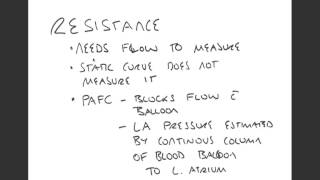 RESISTANCE
• NEEDS FLOW TO MEASURE
• STATIC CURVE DOES NOT
MEASURE IT
• PAFC – BLOCKS FLOW c̄
BALLOON
– LA PRESSURE ESTIMATED
BY CONTINOUS COLUMN
OF BLOOD BALLOON
TO L. ATRIUM